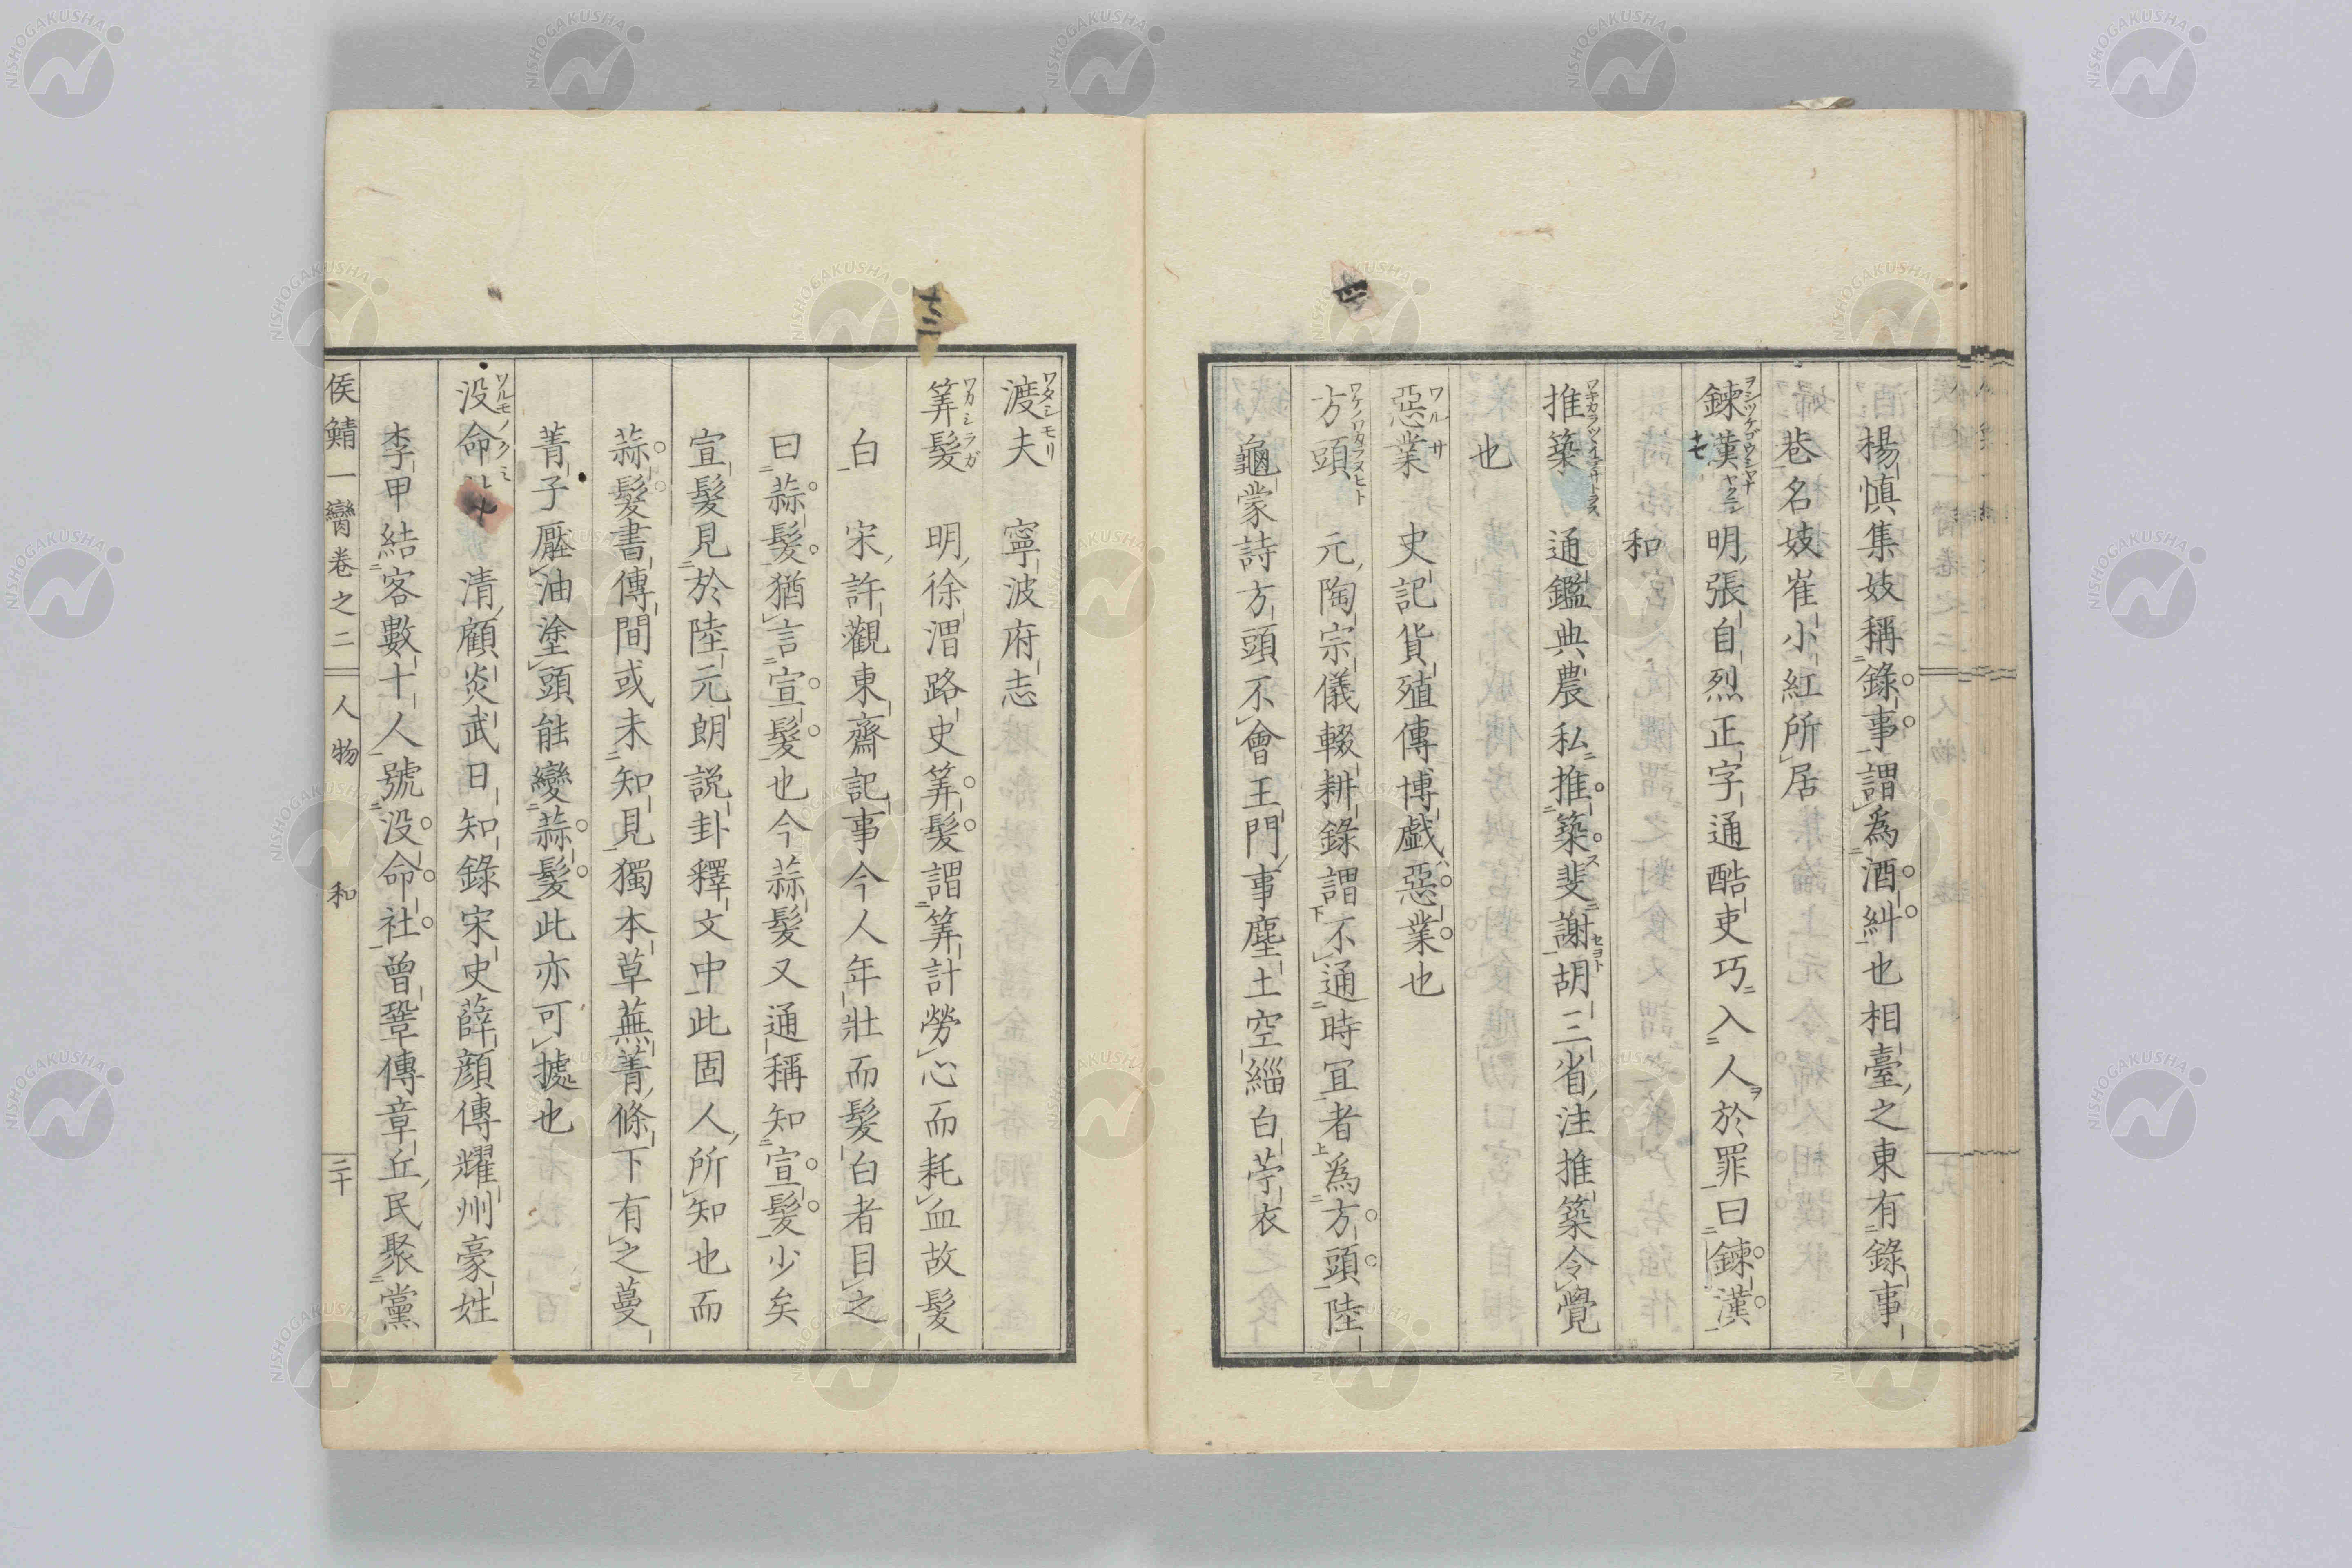 楊慎集妓稱錄事謂為酒糾也相臺之東有錄事
巷名妓崔小紅所居
鍊漢 明張自烈正字通酷吏巧入人於罪曰鍊漢
和
推築 通鑑典農私推築斐謝胡三省注推築令覺
也
惡業 史記貨殖傳博戯惡業也
方頭 元陶宗儀輟耕錄謂不通時宜者為方頭陸
龜蒙詩方頭不會王門事塵土空緇白苧衣
渡夫 寧波府志
筭髮 明徐渭路史筭髮謂筭計勞心而耗血故髮
白 宋許觀東齋記事今人年壯而髮白者目之
曰蒜髮猶言宣髮也今蒜髮又通稱知宣髮少矣
宣髮見於陸元朗説卦釋文中此固人所知也而
蒜髮書傳間或未知見獨本草蕪菁條下有之蔓
菁子壓油塗頭能變蒜髮此亦可據也
没命 清顧炎武日知錄宋史薛顔傳耀州豪姓
李甲結客數十人號没命社曾鞏傳章丘民聚黨
侯鯖一臠卷之二 人物 和 二十
ワタシモリ
ワカシラガ
ワルサ
NISHOGAKUSHA